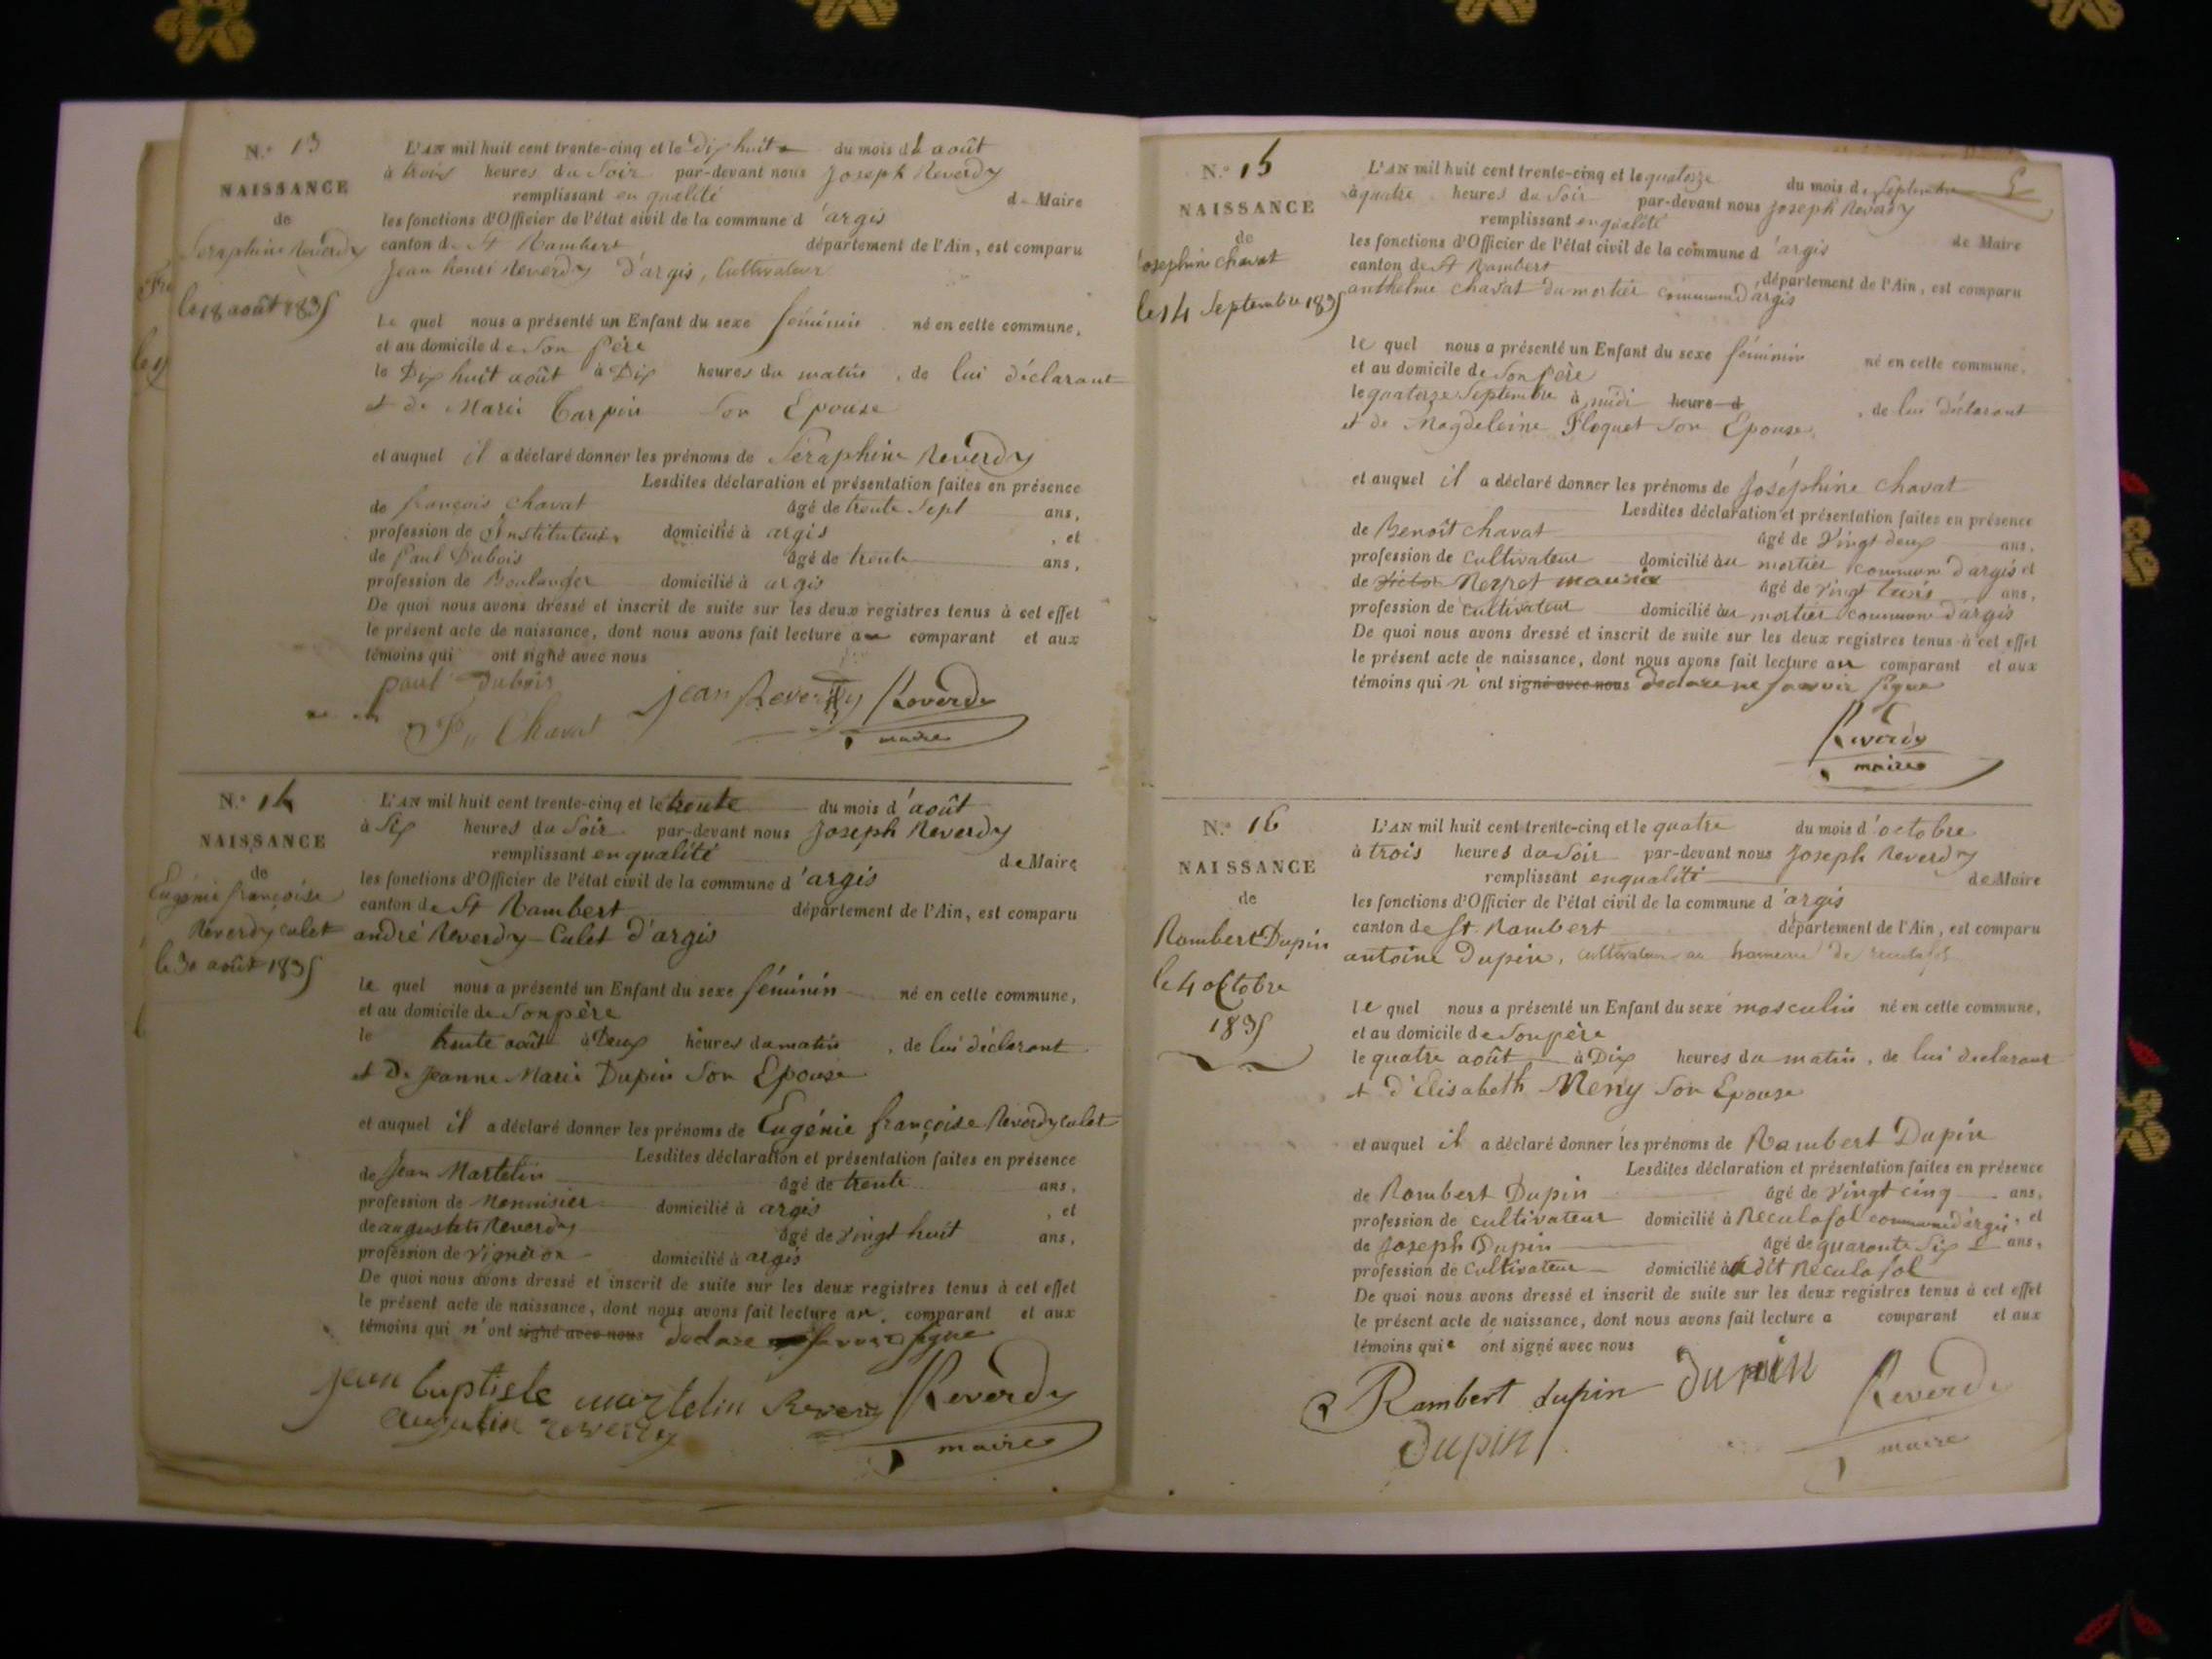 N.º 13
NAISSANCE
de
Seraphine Reverdy
le 18 août 1835
L'AN mil huit cent trente-cinq et le Dix huit du mois d août
à trois heures du Soir par-devant nous Joseph Reverdy
remplissant en qualité de Maire
les fonctions d'Officier de l'état civil de la commune d'argis
canton de St Rambert département de l'Ain, est comparu
Jean henri Reverdy d'argis, Cultivateur
le quel nous a présenté un Enfant du sexe féminin né en cette commune,
et au domicile de Son père
le Dix huit août à Dix heures du matin, de lui déclarant
et de Marie Carpin Son Epouse
et auquel il a déclaré donner les prénoms de Séraphine Reverdy
Lesdites déclaration et présentation faites en présence
de françois Chavat âgé de trente Sept ans,
profession de Instituteur domicilié à argis, et
de Paul Dubois âgé de trente ans,
profession de Boulanger domicilié à argis
De quoi nous avons dressé et inscrit de suite sur les deux registres tenus à cet effet
le présent acte de naissance, dont nous avons fait lecture au comparant et aux
témoins qui ont signé avec nous
paul Dubois
Jean Reverdy Reverdy
Fs Chavat
maire
N.º 14
NAISSANCE
de
Eugénie françoise
Reverdy culet
le 30 août 1835
L'AN mil huit cent trente-cinq et le trente du mois d'août
à Six heures du Soir par-devant nous Joseph Reverdy
remplissant en qualité de Maire
les fonctions d'Officier de l'état civil de la commune d'argis
canton de St Rambert département de l'Ain, est comparu
andré Reverdy-Culet d'argis
le quel nous a présenté un Enfant du sexe féminin né en cette commune,
et au domicile de Son père
le trente août à Deux heures du matin, de lui déclarant
et De Jeanne Marie Dupin Son Epouse
et auquel il a déclaré donner les prénoms de Eugénie françoise Reverdy culet
Lesdites déclaration et présentation faites en présence
de Jean Martelin âgé de trente ans,
profession de Menuisier domicilié à argis, et
de augustin Reverdy âgé de vingt huit ans,
profession de vigneron domicilié à argis
De quoi nous avons dressé et inscrit de suite sur les deux registres tenus à cet effet
le présent acte de naissance, dont nous avons fait lecture au comparant et aux
témoins qui n'ont signé avec nous declare savoir signe
jean baptiste martelin Reverdy Reverdy
augustin reverdy
maire
N.º 15
NAISSANCE
de
Josephine Chavat
le 14 Septembre 1835
L'AN mil huit cent trente-cinq et le quatorze du mois de Septembre
à quatre heures du Soir par-devant nous Joseph Reverdy
remplissant en qualité de Maire
les fonctions d'Officier de l'état civil de la commune d'argis
canton de St Rambert département de l'Ain, est comparu
anthelme Chavat du mortier commune d'argis
le quel nous a présenté un Enfant du sexe féminin né en cette commune,
et au domicile de Son père
le quatorze Septembre à midi heure d, de lui déclarant
et de Magdeleine Floquet Son Epouse
et auquel il a déclaré donner les prénoms de Joséphine Chavat
Lesdites déclaration et présentation faites en présence
de Benoît Chavat âgé de vingt deux ans,
profession de Cultivateur domicilié au mortier commune d'argis et
de Victor Neyret maurice âgé de vingt trois ans,
profession de Cultivateur domicilié au mortier commune d'argis
De quoi nous avons dressé et inscrit de suite sur les deux registres tenus à cet effet
le présent acte de naissance, dont nous avons fait lecture au comparant et aux
témoins qui n'ont signé avec nous declare ne savoir signe
Reverdy
maire
N.º 16
NAISSANCE
de
Rambert Dupin
le 4 octobre
1835
L'AN mil huit cent trente-cinq et le quatre du mois d'octobre
à trois heures du Soir par-devant nous Joseph Reverdy
remplissant en qualité de Maire
les fonctions d'Officier de l'état civil de la commune d'argis
canton de St Rambert département de l'Ain, est comparu
antoine Dupin, cultivateur au hameau de reculafol
le quel nous a présenté un Enfant du sexe masculin né en cette commune,
et au domicile de Son père
le quatre août à Dix heures du matin, de lui déclarant
et d'Elisabeth Neny Son Epouse
et auquel il a déclaré donner les prénoms de Rambert Dupin
Lesdites déclaration et présentation faites en présence
de Rambert Dupin âgé de vingt cinq ans,
profession de cultivateur domicilié à Reculafol commune d'argis, et
de Joseph Dupin âgé de quarante Six ans,
profession de Cultivateur domicilié à dit Reculafol
De quoi nous avons dressé et inscrit de suite sur les deux registres tenus à cet effet
le présent acte de naissance, dont nous avons fait lecture a comparant et aux
témoins qui ont signé avec nous
Rambert dupin Dupin Reverdy
Dupin
maire